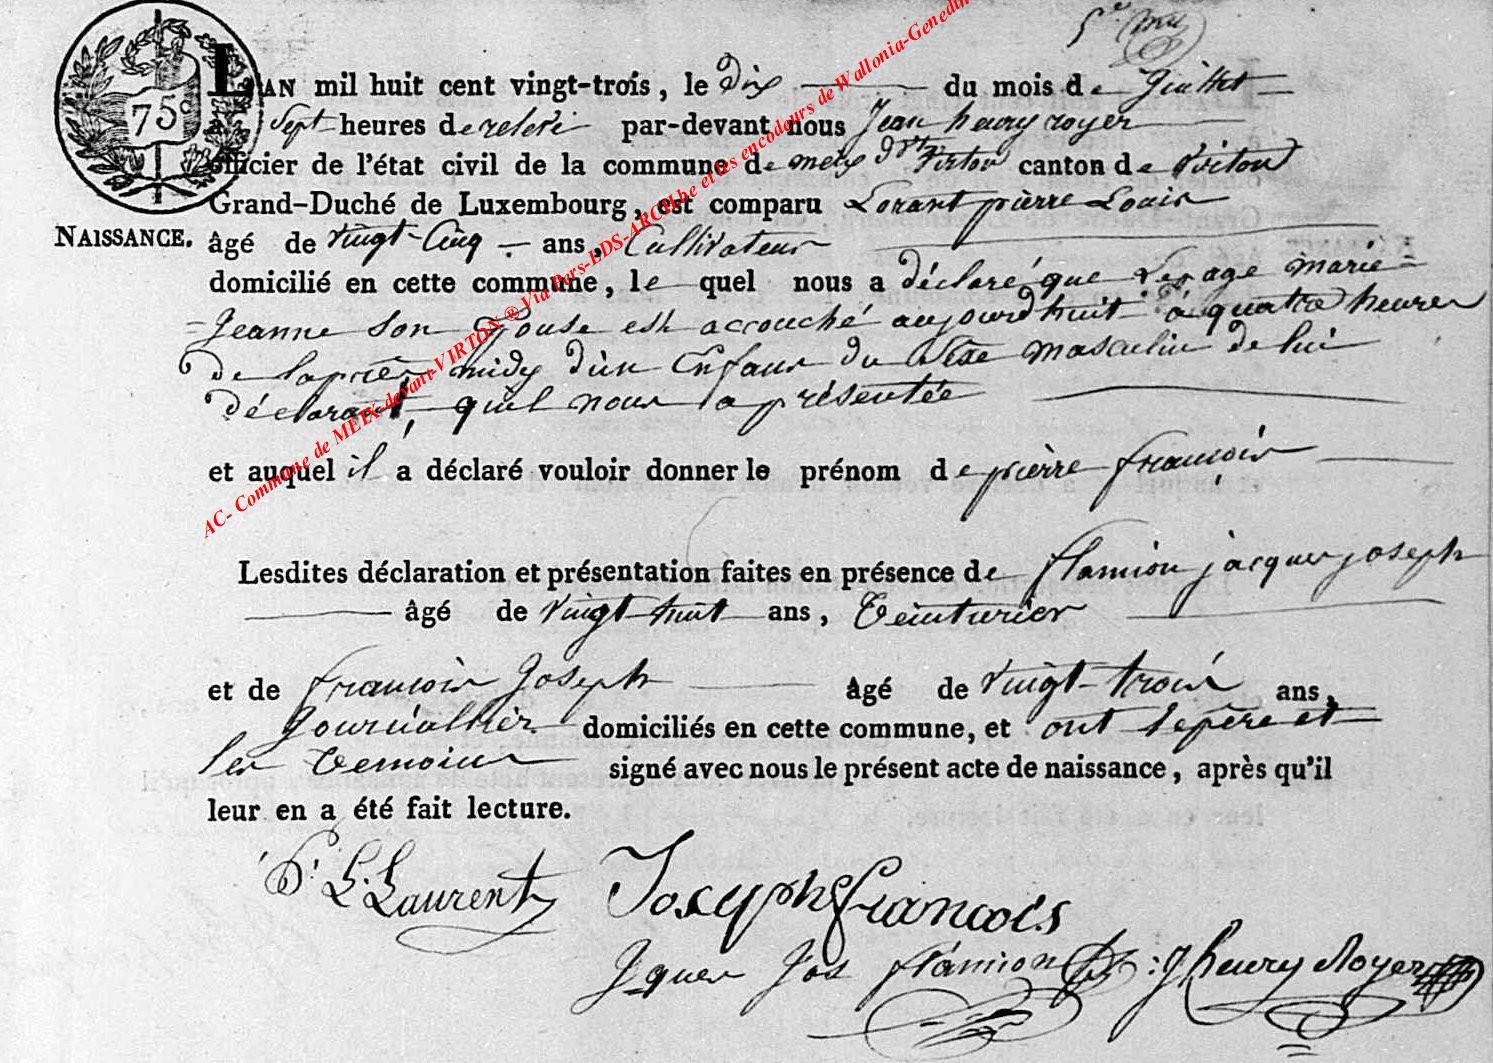 75c
L'AN mil huit cent vingt-trois, le dix du mois de Juillet
à Sept heures de relevé par-devant nous Jean henry royer
officier de l'état civil de la commune de meix dvt Virton canton de virton
Grand-Duché de Luxembourg, est comparu Lorant pierre Louis
NAISSANCE. âgé de vingt-Cinq ans, Cultivateur
domicilié en cette commune, le quel nous a déclaré que Lepage marie=
=Jeanne Son Epouse est accouché aujourdhuit à quatre heures
De laprès midy d'un Enfant du Sexe masculin de lui
déclarant, quil nous a présentée
et auquel il a déclaré vouloir donner le prénom de pierre françois
Lesdites déclaration et présentation faites en présence de flamion jacques joseph
âgé de vingt huit ans, Teinturier
et de francois Joseph âgé de vingt-trois ans,
Journallier domiciliés en cette commune, et ont le père et
les temoins signé avec nous le présent acte de naissance, après qu'il
leur en a été fait lecture.
P. L. Laurent Joseph francois
Jques Jos flamion J henry Royer
AC- Commune de MEIX-devant-VIRTON ® Via Pers-LDS-ARCH.be et les encodeurs de Wallonia-Genedin